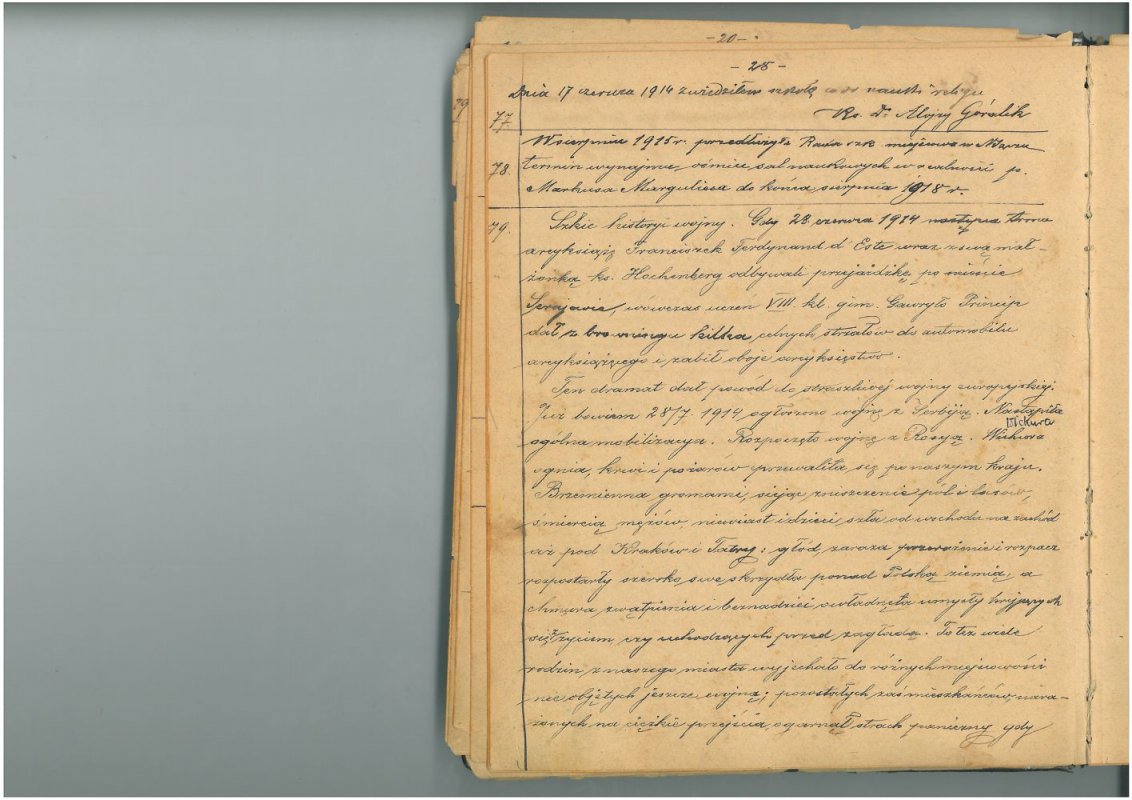 - 20 -
- 28 -
79
Dnia 17 czerwca 1914 zwiedziłem szkołę co do nauki religii
77. Ks. Dr Alojzy Góralik
W sierpniu 1915 r. przedłużyła Rada szk. miejscowa w
78. termin wynajmu ośmiu sal naukowych w realności p.
Markusa Marguliesa do końca sierpnia 1918 r.
79. Szkic historyi wojny. Gdy 28 czerwca 1914 następca tronu
arcyksiążę Franciszek Ferdynand d' Este wraz z swą mał-
żonką ks. Hochenberg odbywali przejażdżkę po mieście
Serajewie, wówczas uczeń VIII. kl. gim. Gawryło Princip
dał z browningu kilka celnych strzałów do automobilu
arcyksiążęcego i zabił oboje arcyksięstwo.
Ten dramat dał powód do straszliwej wojny europejskiej.
Już bowiem 28/7. 1914 ogłoszono wojnę z Serbiją. Nastąpiła
ogólna mobilizacya. Rozpoczęto wojnę z Rosyą. Wichura
ognia, krwi i pożarów przewaliła się po naszym kraju.
Brzemienna gromami, siejąc zniszczenie pól i lasów,
śmiercią mężów, niewiast i dzieci szła od wschodu na zachód
aż pod Kraków i Tatry; głód, zaraza przerażenie i rozpacz
rozpostarły szeroko swe skrzydła ponad Polską ziemią, a
chmura zwątpienia i beznadziei owładnęła umysły kryjących
się z życiem, czy uchodzących przed zagładą. To też wiele
rodzin z naszego miasta wyjechało do różnych miejscowości
nie objętych jeszcze wojną; pozostałych zaś mieszkańców, nara-
żonych na ciężkie przejścia, ogarnął strach paniczny, gdy